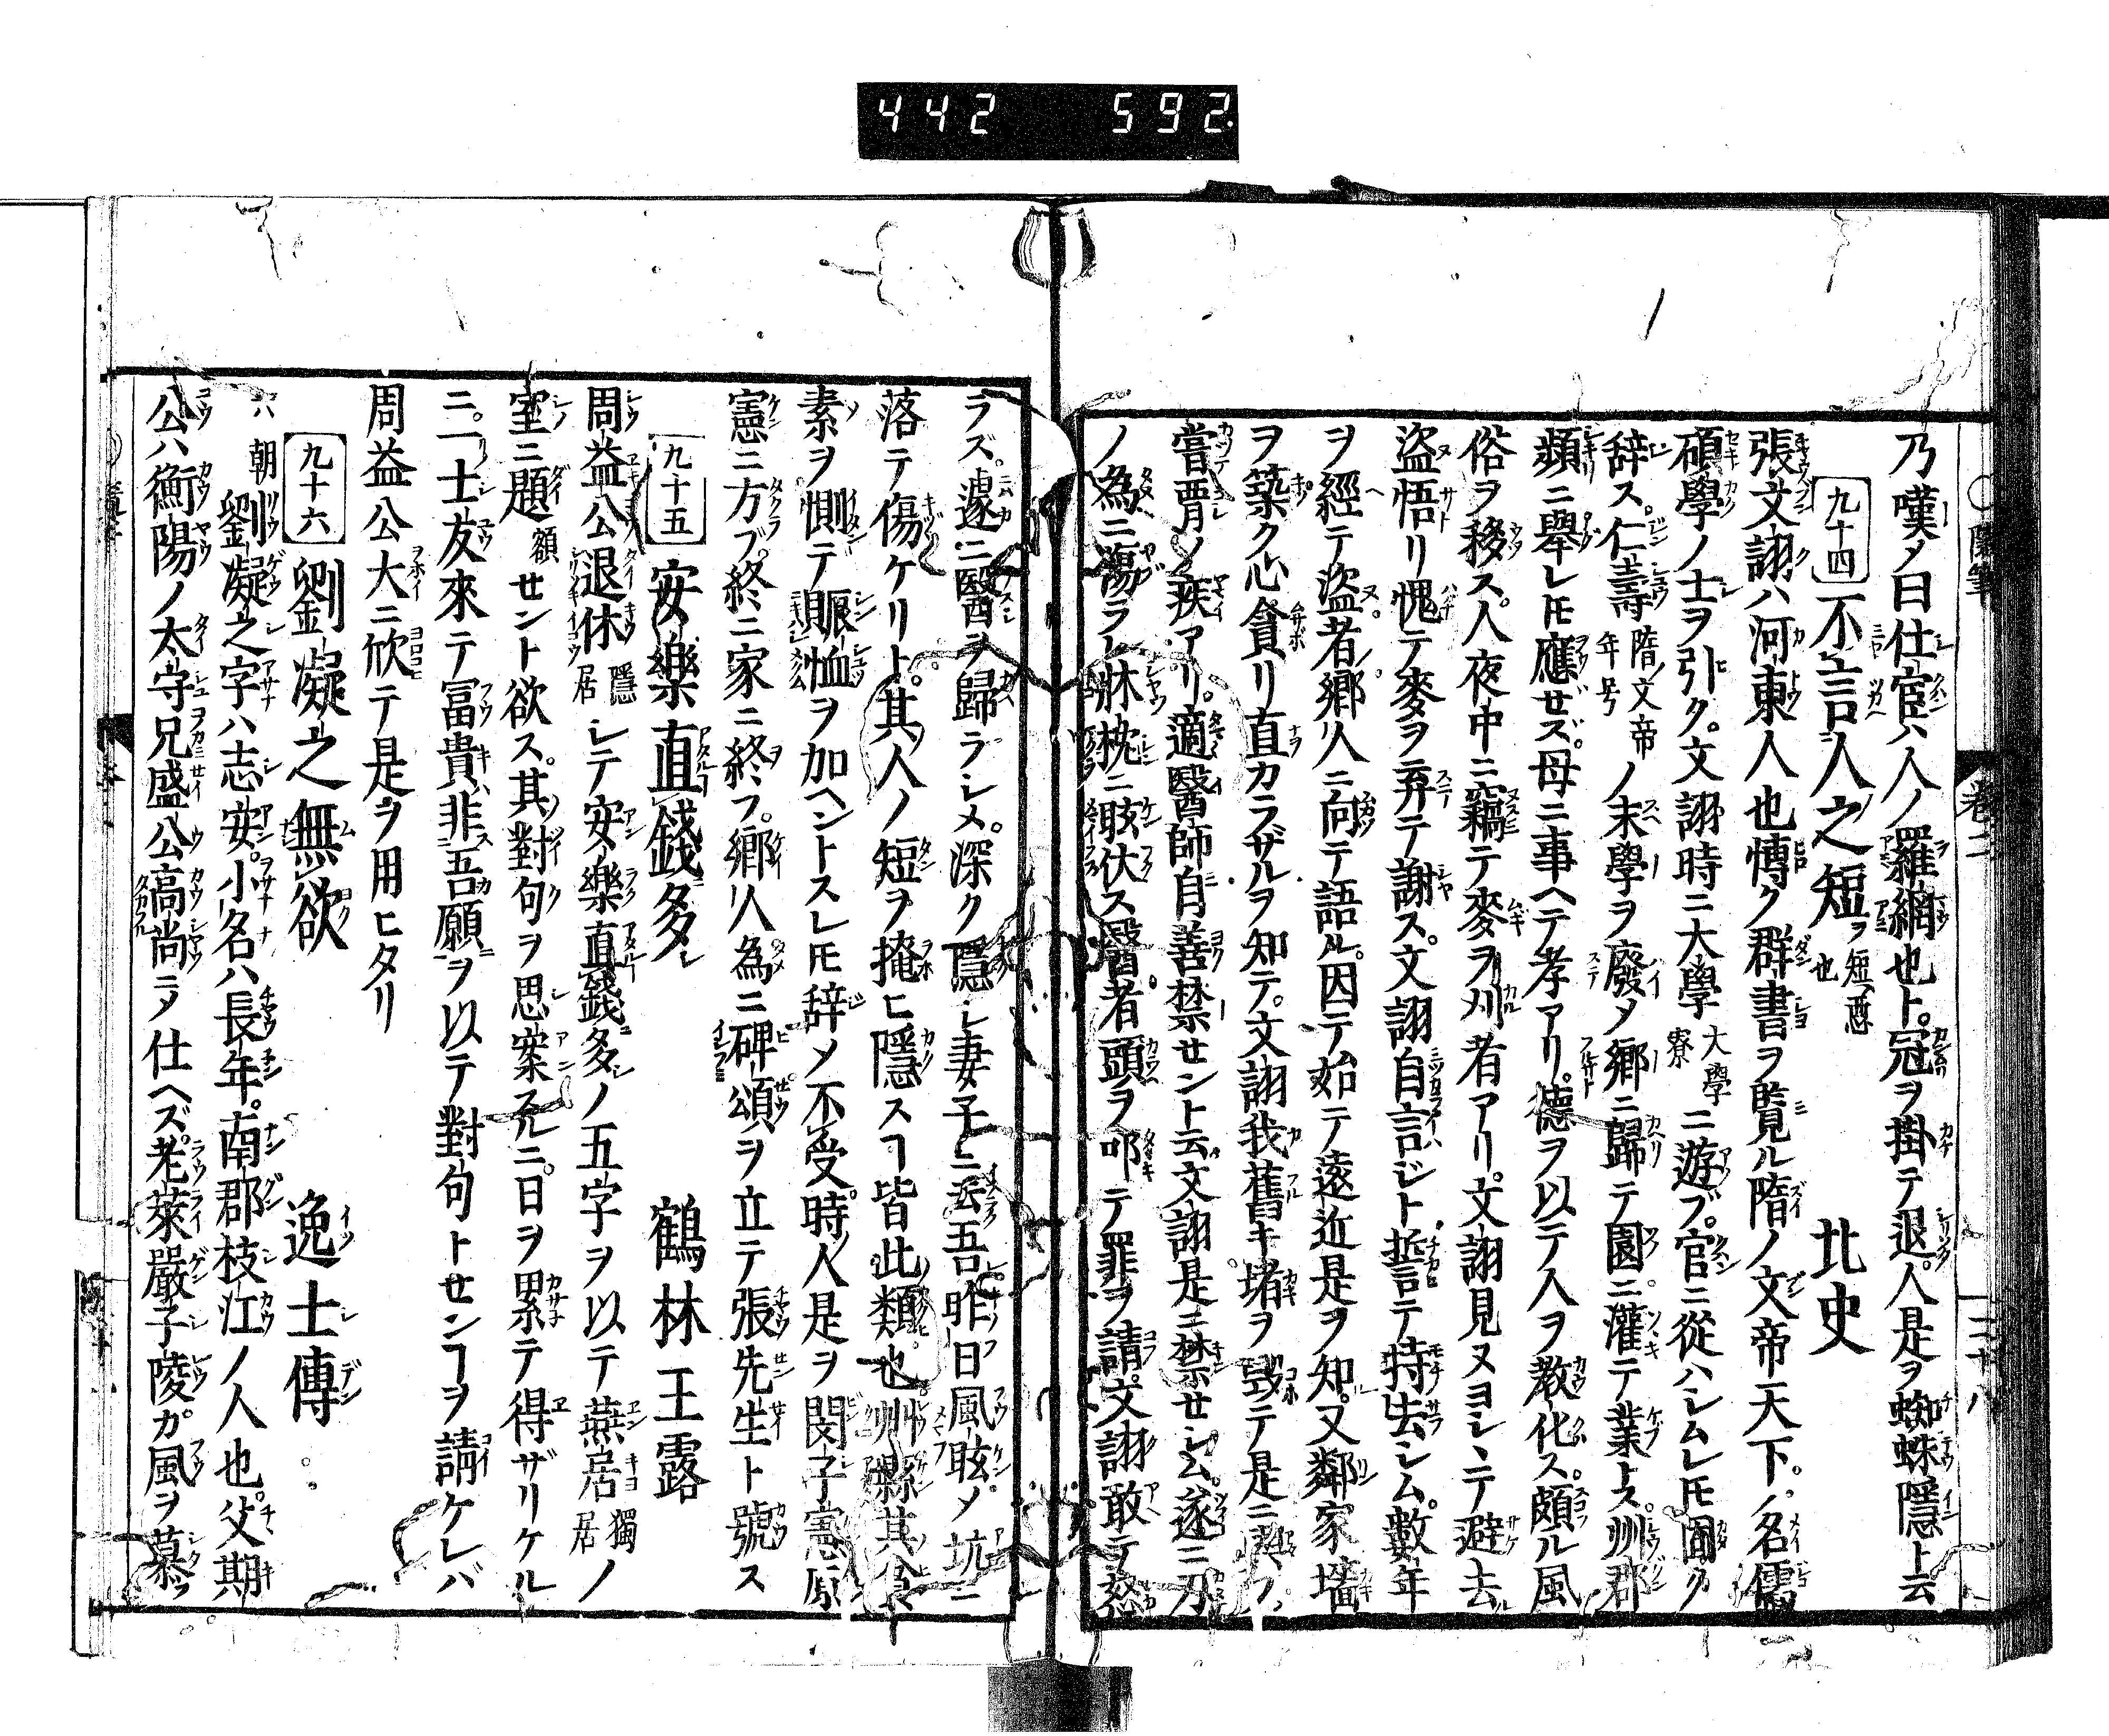 442 592
乃嘆メ曰仕宦ハ人ノ羅網也ト冠ヲ掛テ退人是ヲ蜘蛛隱ト云
九十四 不言人之短ヲ 短ハ惡也 北史
張文詡ハ河東人也博ク群書ヲ覧ル隋ノ文帝天下ノ名儒
碩學ノ士ヲ引ク文詡時ニ大學 大學寮 ニ遊ブ官ニ從ハシムレ𪜈固ク
辞ス仁壽 隋ノ文帝年号 ノ末學ヲ廢メ郷ニ歸テ園ニ灌テ業トス州郡
頻ニ舉レ𪜈應ゼズ母ニ事ヘテ孝アリ德ヲ以テ人ヲ教化ス頗ル風
俗ヲ移ス人夜中ニ竊テ麥ヲ刈者アリ文詡見ヌヨシヽテ避去
盗悟リ愧テ麥ヲ弃テ謝ス文詡自言ジト誓テ持去シム數年
ヲ經テ盗者郷人ニ向テ語ル因テ始テ遠近是ヲ知又鄰家墻
ヲ築ク心貪リ直カラザルヲ知テ文詡我舊キ堵ヲ毀テ是ニ應フ
嘗胃ノ疾アリ適醫師自善禁セント云文詡是ニ禁セシム遂ニ刃
ノ為ニ傷ラレ牀枕ニ眩伏ス醫者頭ヲ叩テ罪ヲ請文詡敢テ怒
ラズ遽ニ醫ヲ歸ラシメ深ク隱シ妻子ニ云吾昨日風眩メ坑ニ
落テ傷ケリト其人ノ短ヲ掩ヒ隱スヿ皆此類也州縣其貧
素ヲ惻テ賑恤ヲ加ヘントスレ𪜈辞メ不受時人是ヲ閔子騫原
憲ニ方ブ終ニ家ニ終フ郷人為ニ碑頌ヲ立テ張先生ト號ス
九十五 安樂直錢多シ 鶴林玉露
周益公退休 隱居 シテ安樂直錢多シノ五字ヲ以テ燕居 獨居 ノ
室ニ題 額 セント欲ス其對句ヲ思案スルニ日ヲ累テ得ザリケル
ニ一士友來テ冨貴非吾願ヲ以テ對句トセンヿヲ請ケレバ
周益公大ニ欣テ是ヲ用ヒタリ
九十六 劉凝之無欲 逸士傳
六朝 劉凝之字ハ志安小名ハ長年南郡枝江ノ人也父期
公ハ衡陽ノ太守兄盛公高尚ニメ仕ヘズ老萊嚴子陵ガ風ヲ慕フ